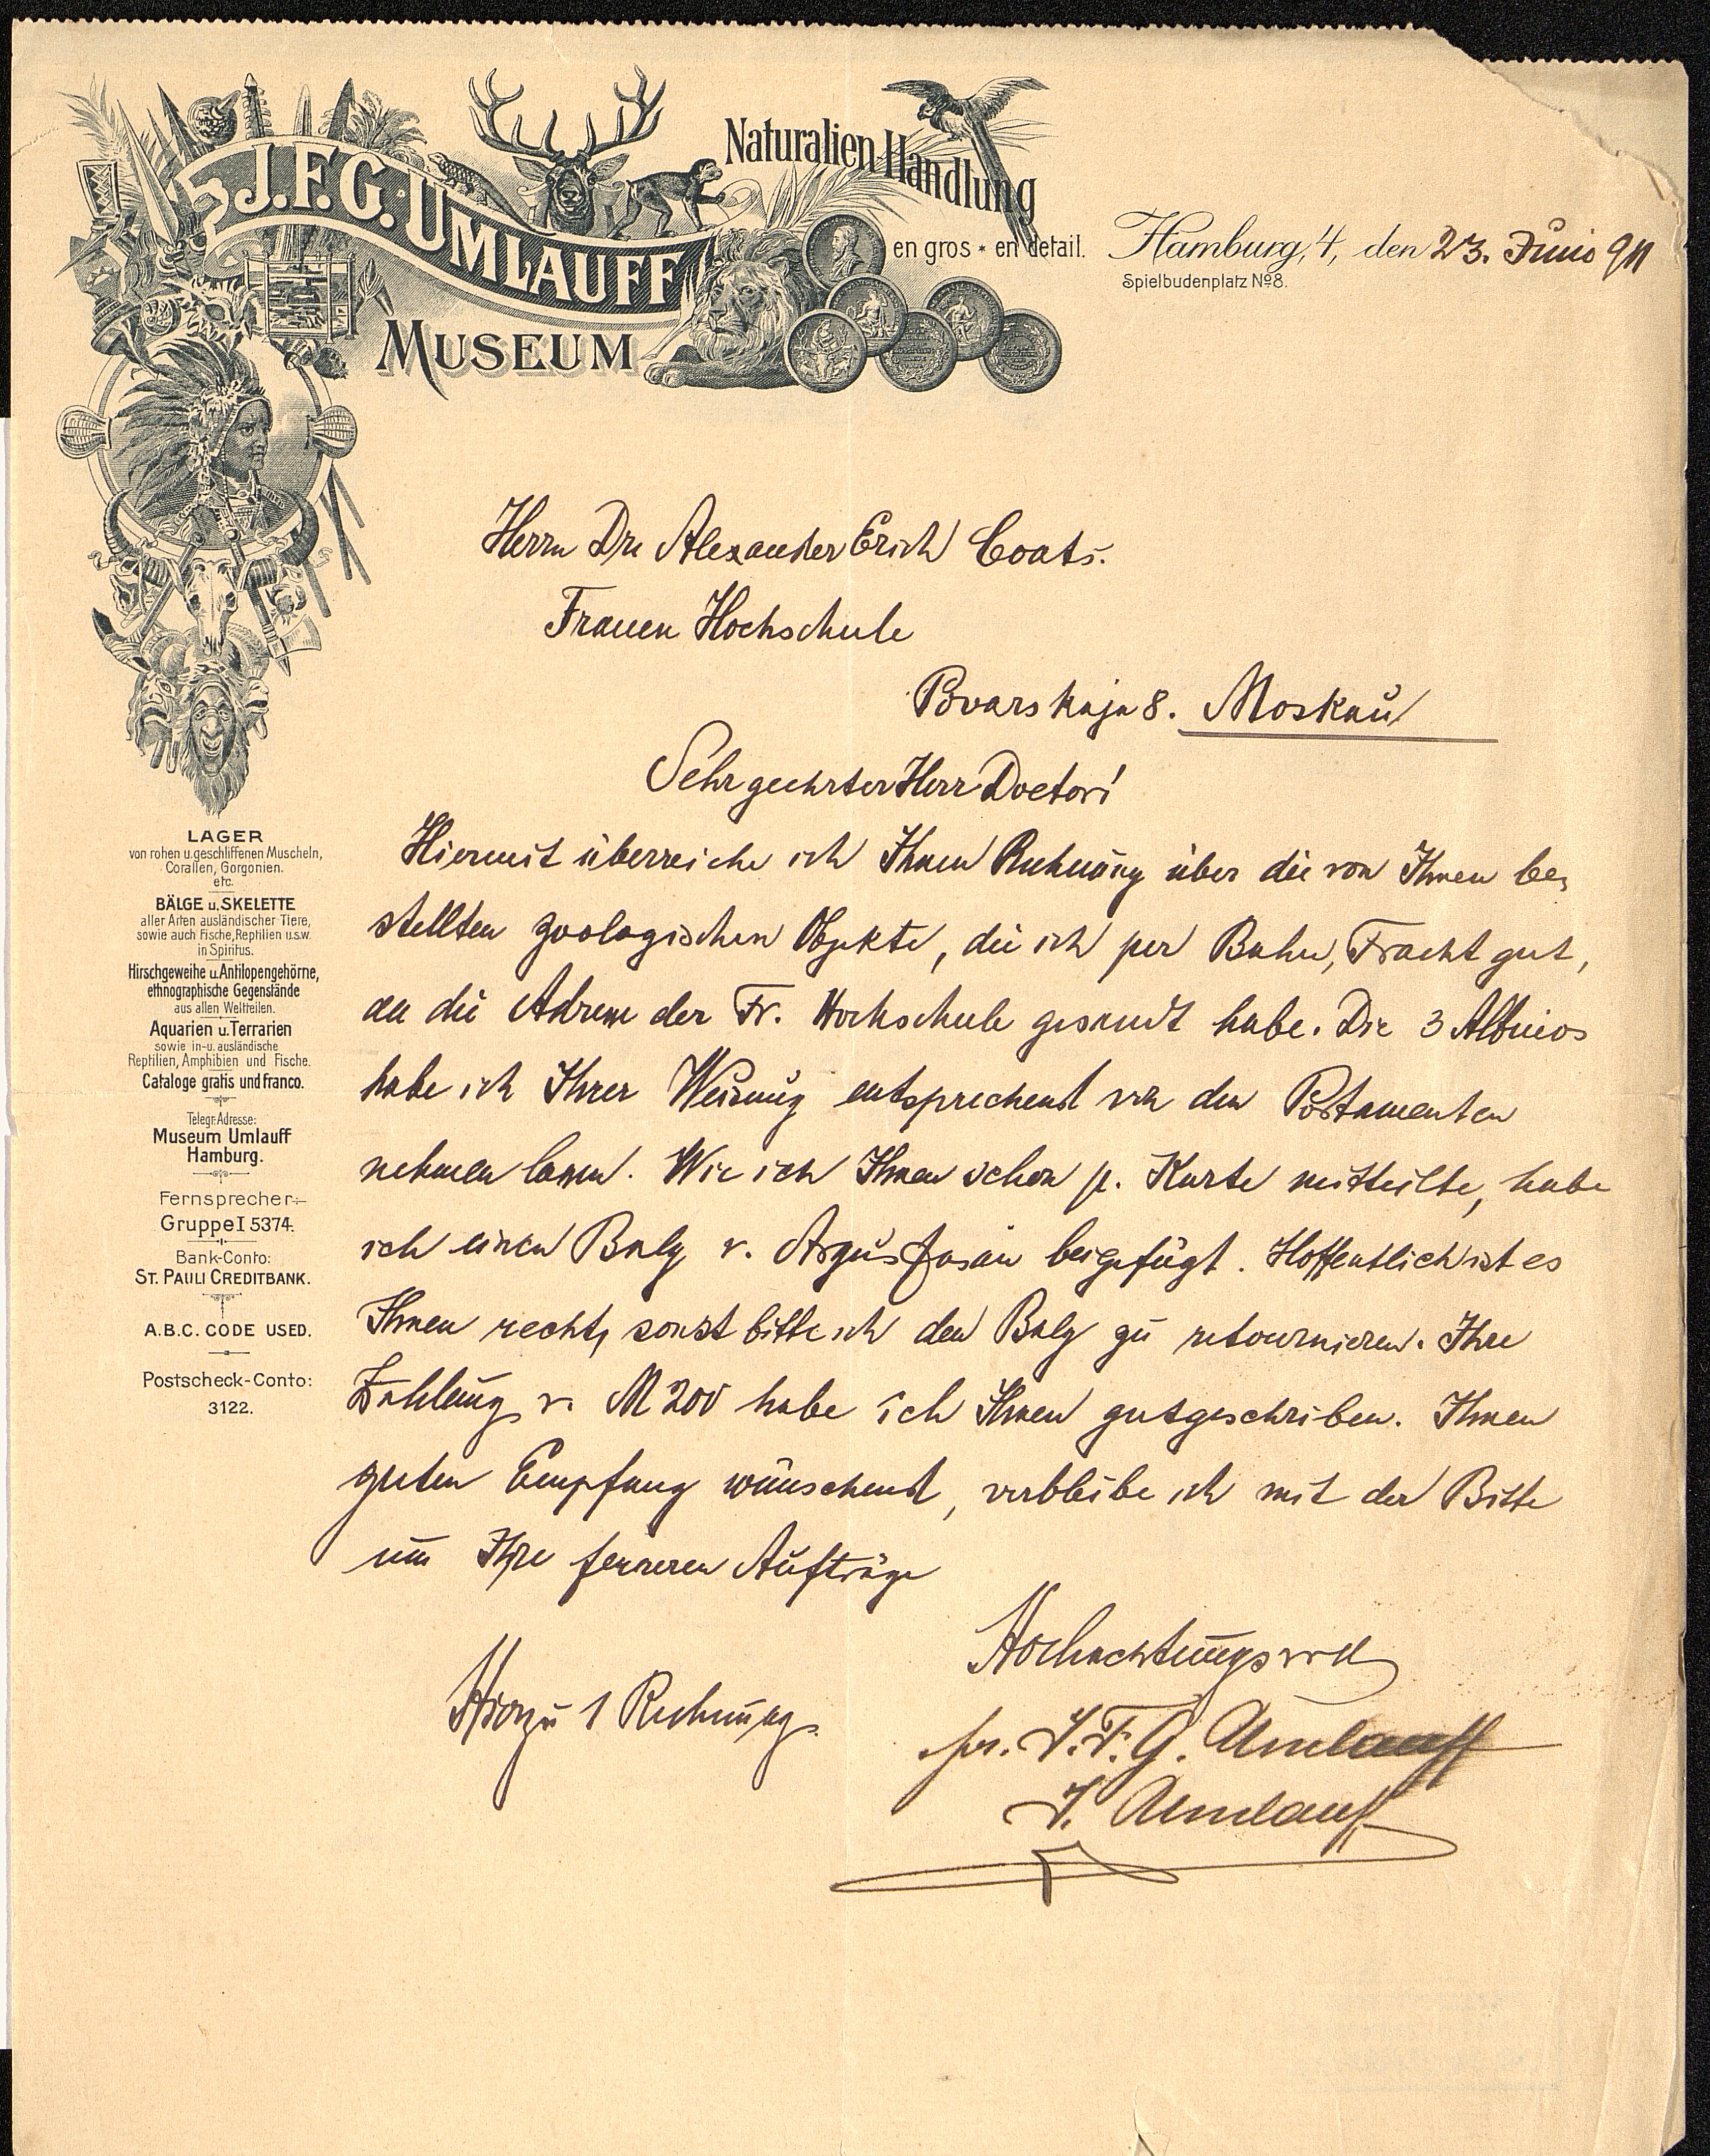 J.F.G. UMLAUFF
MUSEUM
Naturalien-Handlung
en gros * en détail.
Hamburg, 4, den 23. Juni 1911
Spielbudenplatz No 8.
Herrn Dr. Alexander Erich Coats.
Frauen Hochschule
Povarskaja 8. Moskau
Sehr geehrter Herr Doctor!
Hiermit überreiche ich Ihnen Rechnung über die von Ihnen be-
stellten zoologischen Objekte, die ich per Bahn, Frachtgut,
an die Adresse der Fr. Hochschule gesandt habe. Die 3 Albinos
habe ich Ihrer Weisung entsprechend von den Postamenten
nehmen lassen. Wie ich Ihnen schon p. Karte mitteilte, habe
ich einen Balg v. Argusfasan beigefügt. Hoffentlich ist es
Ihnen recht, sonst bitte ich den Balg zu retournieren. Ihre
Zahlung v. M 200 habe ich Ihnen gutgeschrieben. Ihnen
guten Empfang wünschend, verbleibe ich mit der Bitte
um Ihre ferneren Aufträge
Hochachtungsvoll
Hierzu 1 Rechnung.
pr. J.F.G. Umlauff
J. Umlauff
LAGER
von rohen u. geschliffenen Muscheln,
Corallen, Gorgonien.
etc.
BÄLGE u. SKELETTE
aller Arten ausländischer Tiere,
sowie auch Fische, Reptilien u.s.w.
in Spiritus.
Hirschgeweihe u. Antilopengehörne,
ethnographische Gegenstände
aus allen Weltteilen.
Aquarien u. Terrarien
sowie in- u. ausländische
Reptilien, Amphibien und Fische.
Cataloge gratis und franco.
Telegr. Adresse:
Museum Umlauff
Hamburg.
Fernsprecher:
Gruppe I 5374.
Bank-Conto:
ST. PAULI CREDITBANK.
A.B.C. CODE USED.
Postscheck-Conto:
3122.